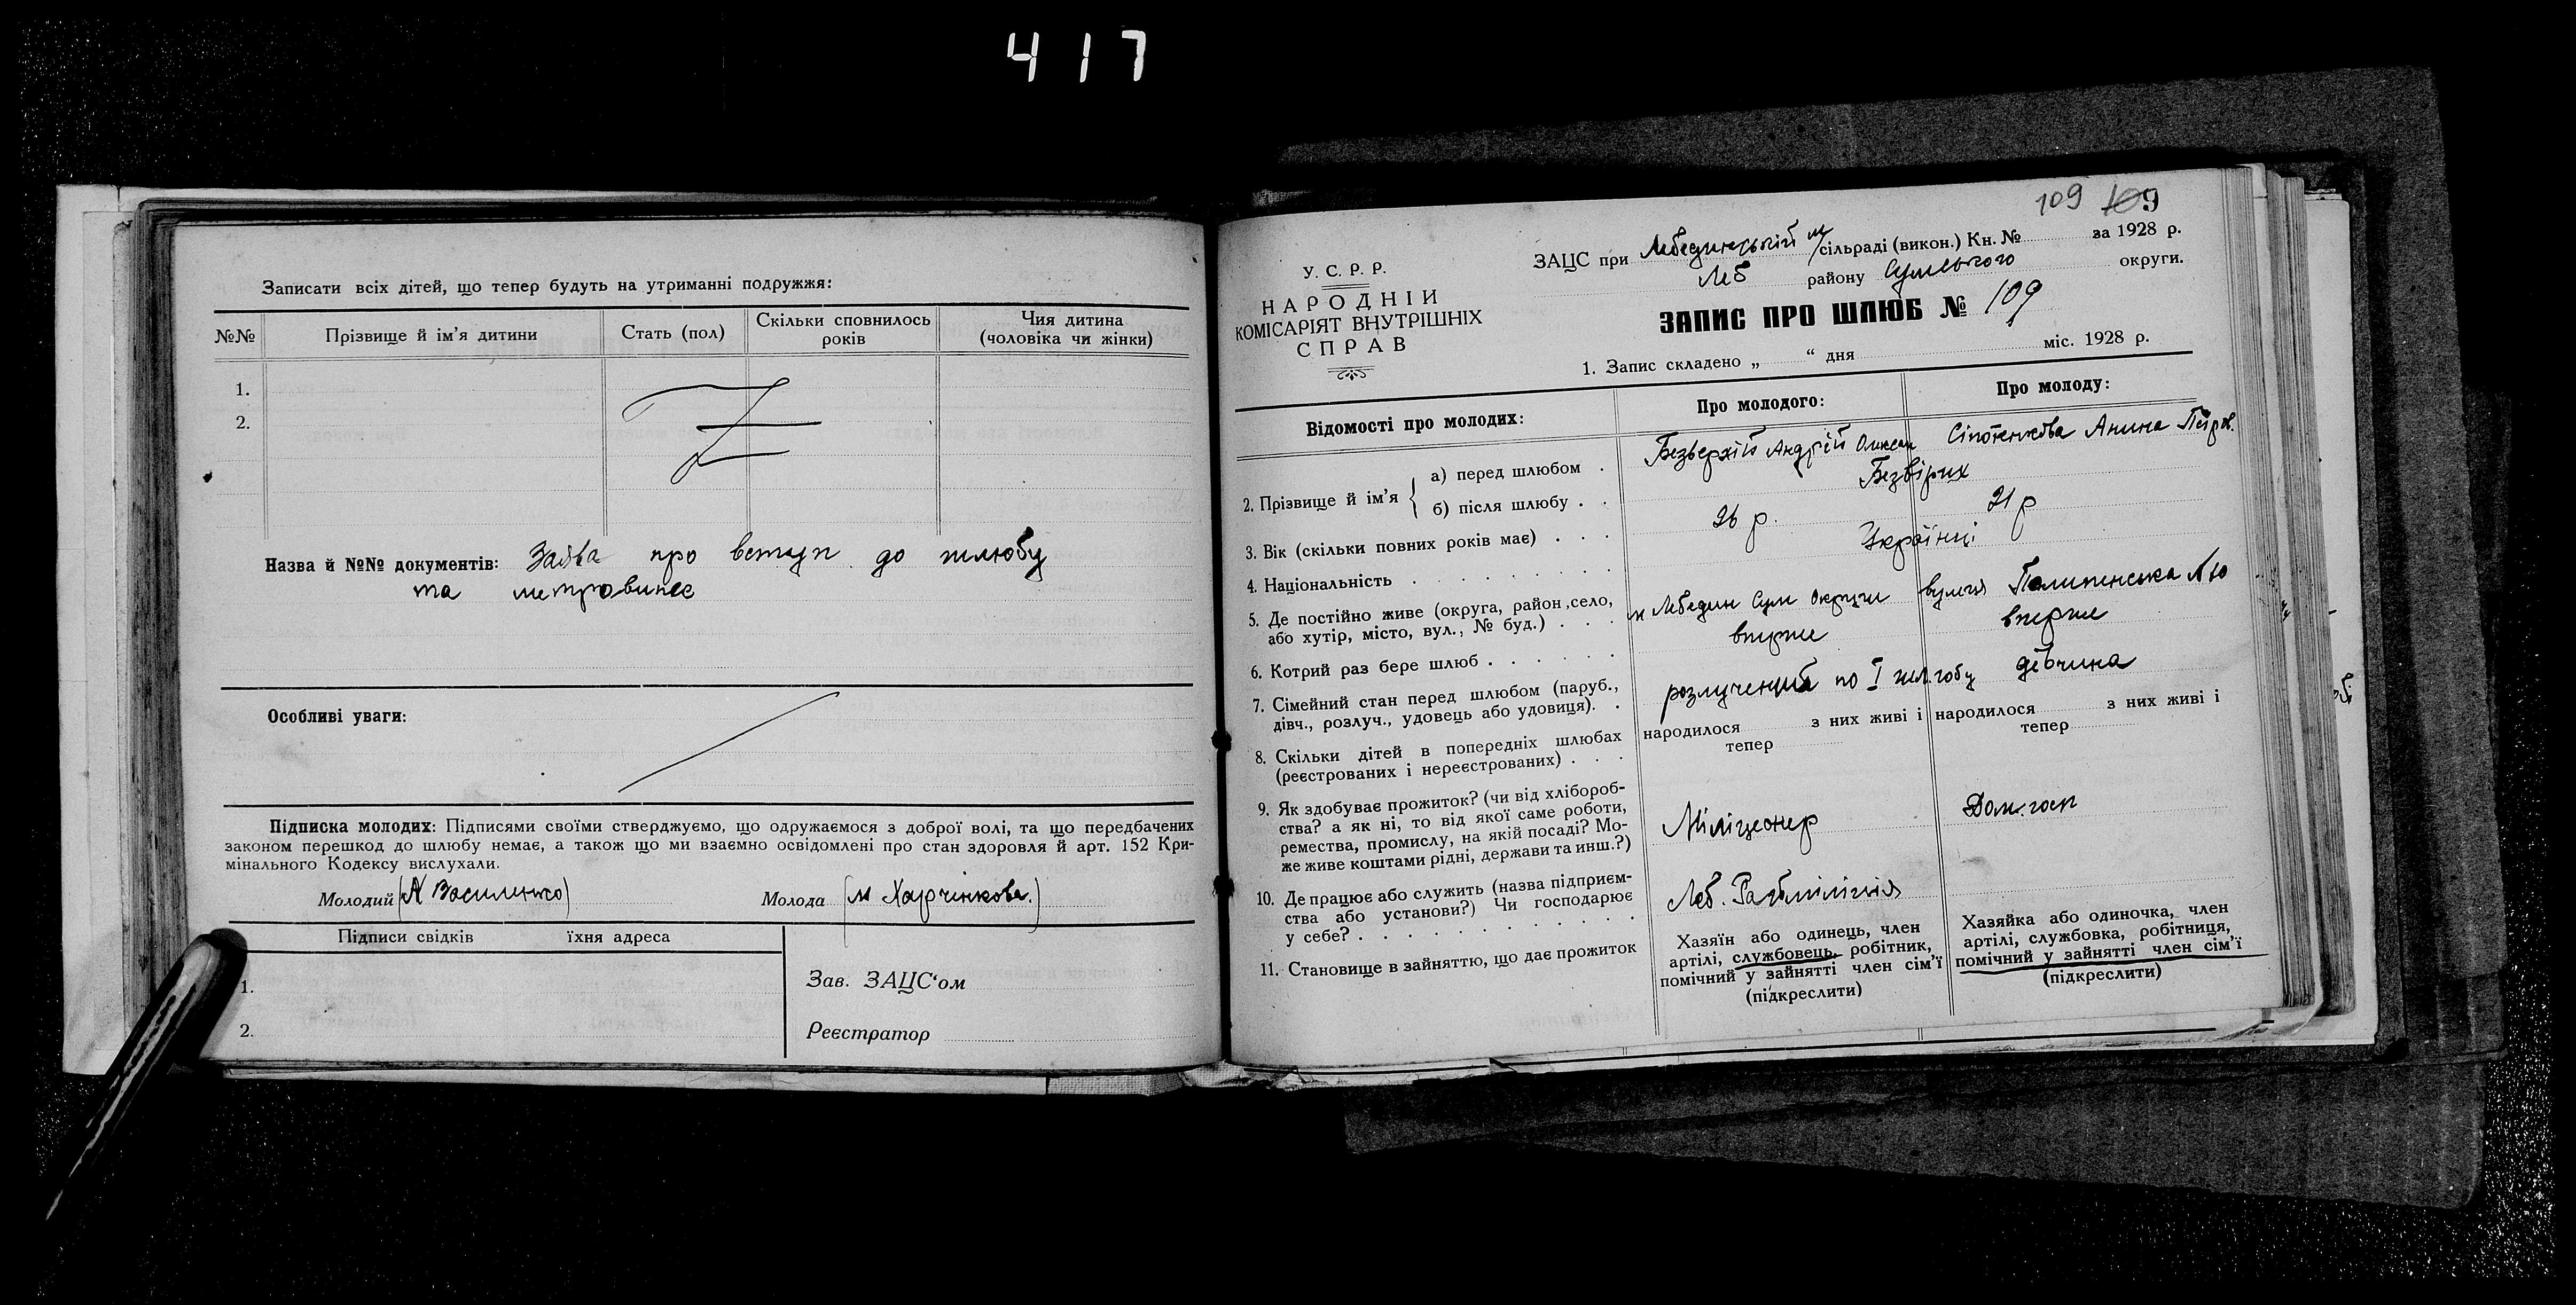 417
Записати всіх дітей, що тепер будуть на утриманні подружжя:
№№ Прізвище й ім'я дитини Стать (пол) Скільки сповнилось років Чия дитина (чоловіка чи жінки)
1.
2.
Назва й №№ документів: Заява про вступ до шлюбу
та метровипис
Особливі уваги:
Підписка молодих: Підписями своїми стверджуємо, що одружаємося з доброї волі, та що передбачених
законом перешкод до шлюбу немає, а також що ми взаємно освідомлені про стан здоровля й арт. 152 Кри-
мінального Кодексу вислухали.
Молодий (А Василенко) Молода (м Харченкова.)
Підписи свідків їхня адреса
1.
2.
Зав. ЗАЦС'ом
Реєстратор
109 109
У. С. Р. Р.
НАРОДНІЙ
КОМІСАРІЯТ ВНУТРІШНІХ
СПРАВ
ЗАЦС при Лебединській м/сільраді (викон.) Кн. № за 1928 р.
Леб району Сумського округи.
ЗАПИС ПРО ШЛЮБ № 109
1. Запис складено „ “ дня міс. 1928 р.
Відомості про молодих: Про молодого: Про молоду:
2. Прізвище й ім'я { а) перед шлюбом . Безверхій Андрій Олексан Анна Петров.
б) після шлюбу . . Безвірих
3. Вік (скільки повних років має) . . . 26 р. 21 р
4. Національність . . . . . . . . . Українці
5. Де постійно живе (округа, район, село,
або хутір, місто, вул., № буд.) . . . м Лебедин Сум Округи вулиця №10
6. Котрий раз бере шлюб . . . . . . вперше вперше
7. Сімейний стан перед шлюбом (паруб.,
дівч., розлуч., удовець або удовиця). . розлучений по І шлюбу дівчина
8. Скільки дітей в попередніх шлюбах
(реєстрованих і нереєстрованих) . . . народилося з них живі і тепер народилося з них живі і тепер
9. Як здобуває прожиток? (чи від хлібороб-
ства? а як ні, то від якої саме роботи,
ремества, промислу, на якій посаді? Мо-
же живе коштами рідні, держави та инш.?) Міліціонер Дом. госп
10. Де працює або служить (назва підприєм-
ства або установи?) Чи господарює
у себе? . . . . . . . . . . . Леб. Райміліція
11. Становище в зайняттю, що дає прожиток
Хазяїн або одинець, член
артілі, службовець, робітник,
помічний у зайнятті член сім'ї
(підкреслити)
Хазяйка або одиночка, член
артілі, службовка, робітниця,
помічний у зайнятті член сім'ї
(підкреслити)